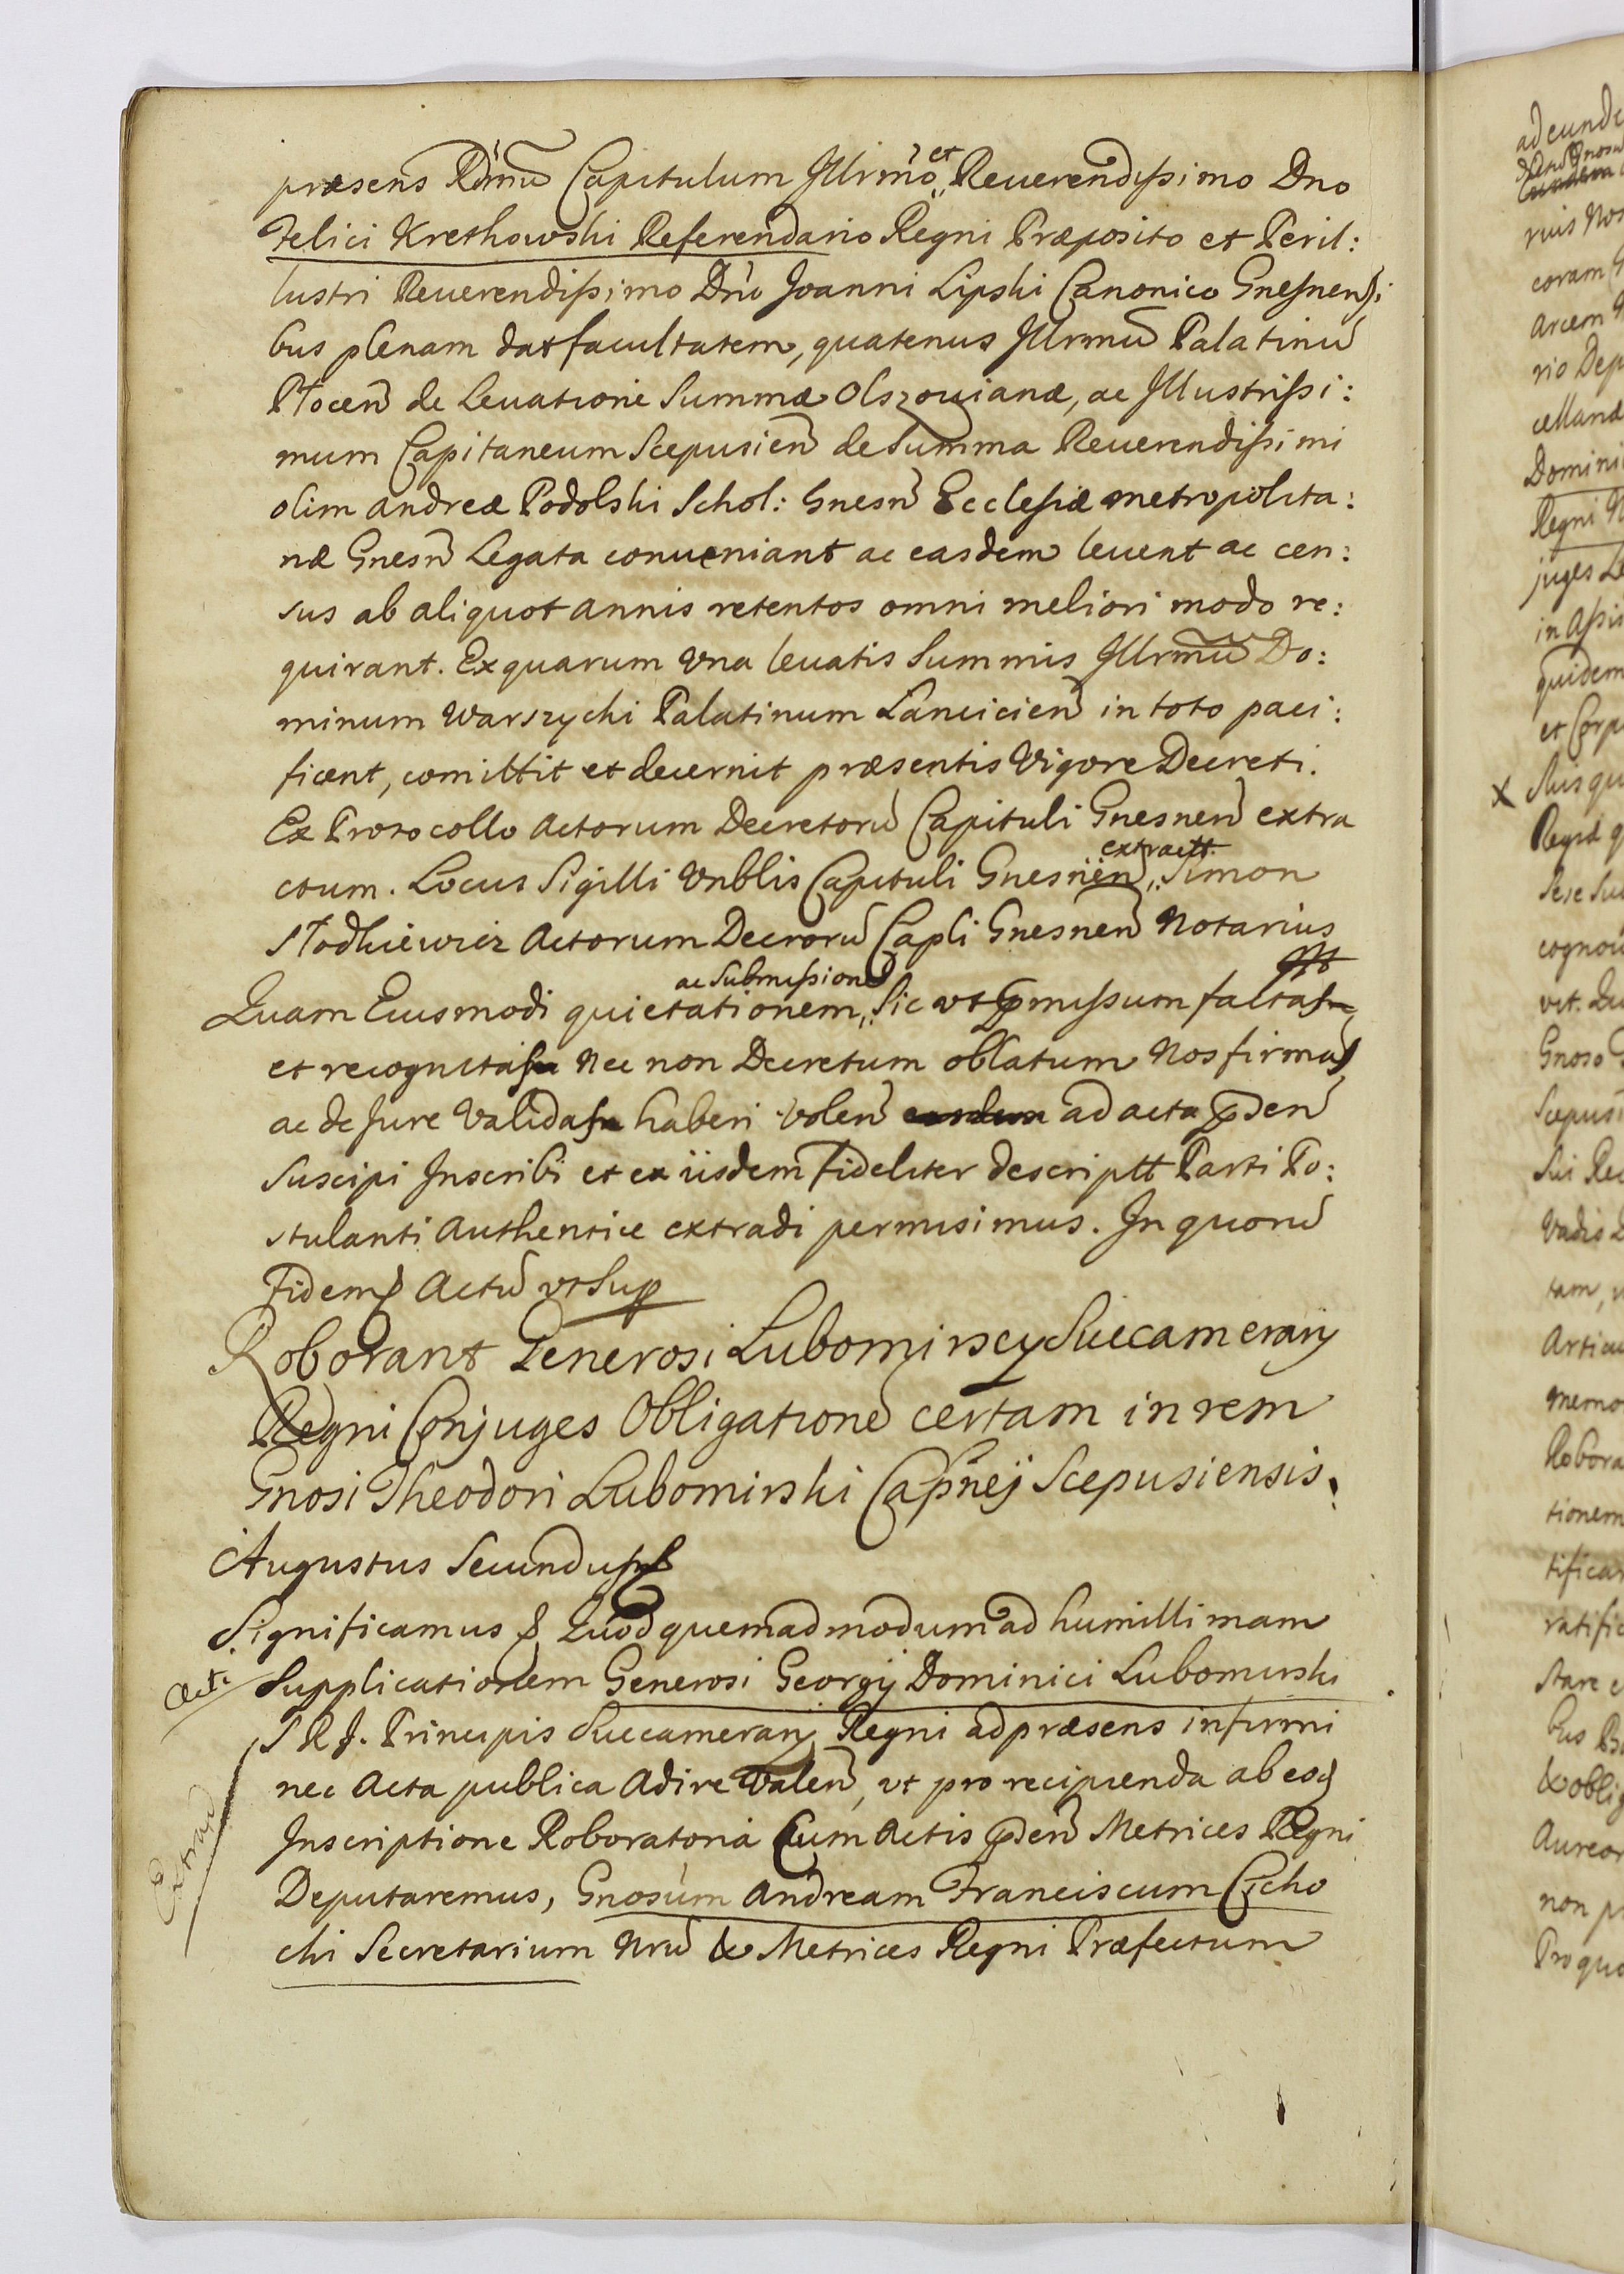 præsens Rdmũ Capitulum Illrmo et Reuerendissimo Dno
Felici Krethowski Referendario Regni Præposito et Peril:
lustri Reuerendissimo Dno Joanni Lipski Canonico Gnesnensi
bus plenam dat facultatem, quatenus Illrmũ Palatinũ
Płocen̄ de Leuatione Summæ Olszouianæ, ac Illustrissi:
mum Capitaneum Scepusien̄ de Summa Reuerendissimi
olim Andreæ Podolski Schol: Gnesn̄ Ecclesiæ metropolita:
næ Gnesn̄ Legata conueniant ac easdem leuent ac cen:
sus ab aliquot annis retentos omni meliori modo re:
quirant. Ex quarum vna leuatis Summis Illrmũ Do:
minum Warszycki Palatinum Lancicien̄ in toto paci:
ficent, comittit et decernit præsentis Vigore Decreti.
Ex Protocollo Actorum Decretorũ Capituli Gnesnen̄ extra
ctum. Locus Sigilli Vnblis Capituli Gnesnen̄ extractt. Simon
Słodkiewicz Actorum Decrorũ Capli Gnesnen̄ Notarius
Quam Eiusmodi quietationem, ac Submission̄ Sic vt pmissum
et recognita Nec non Decretum oblatum Nos firma
ac de Jure Valida haberi volen̄ ad acta pden̄
Suscipi Inscribi et ex iisdem Fideliter descriptt Parti Po:
stulanti Authentice extradi permisimus. In quorũ
Fidem Actũ vt Sup
Roborant Generosi Lubomirscy Succamerarij
Regni Conjuges Obligationẽ certam in rem
Gnosi Theodori Lubomirski Capnej Scepusiensis.
Augustus Secundus
Significamus Quod quemadmodum ad humillimam
Supplicationem Generosi Georgij Dominici Lubomirski
S R J. Principis Succamerarij Regni ad præsens infirmi
nec Acta publica Adire Valen̄, vt pro recipienda ab eo
Inscriptione Roboratoria Cum Actis pden̄ Metrices Regni
Deputaremus, Gnosum Andream Franciscum Cicho
cki Secretarium Nrũ & Metrices Regni Præfectum